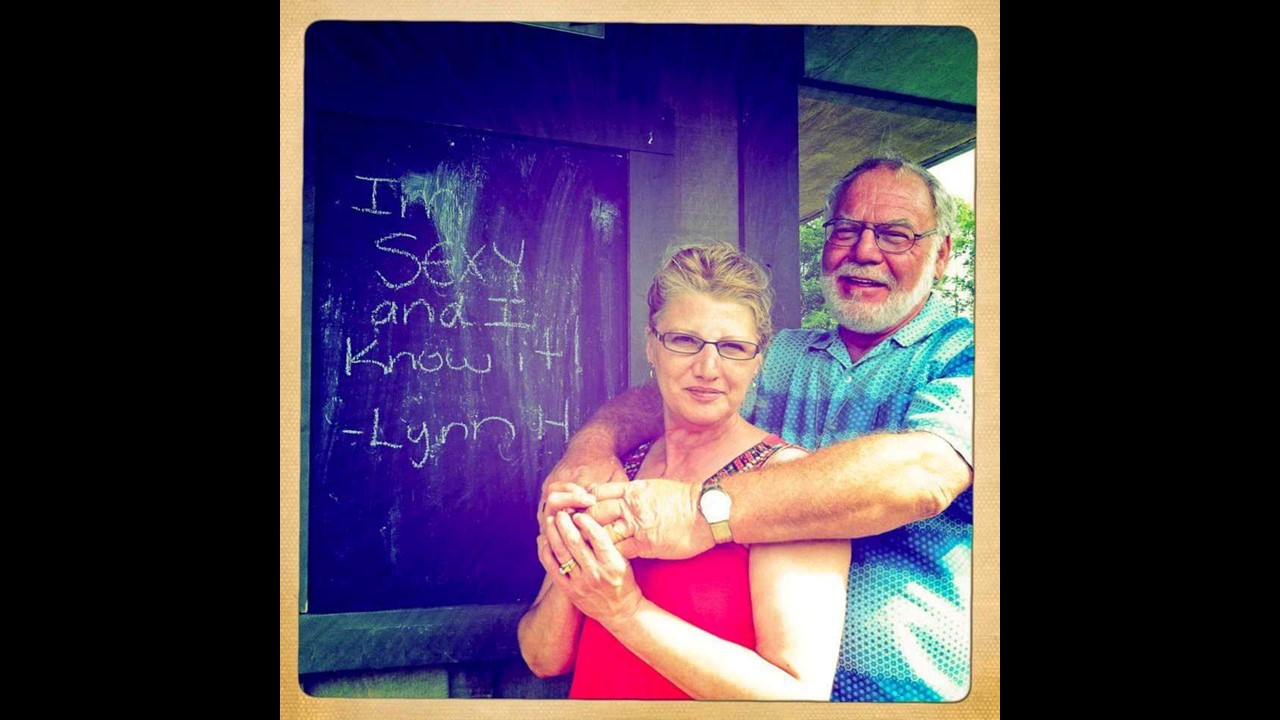 I'm
Sexy
and I
Know it!
-Lynn H